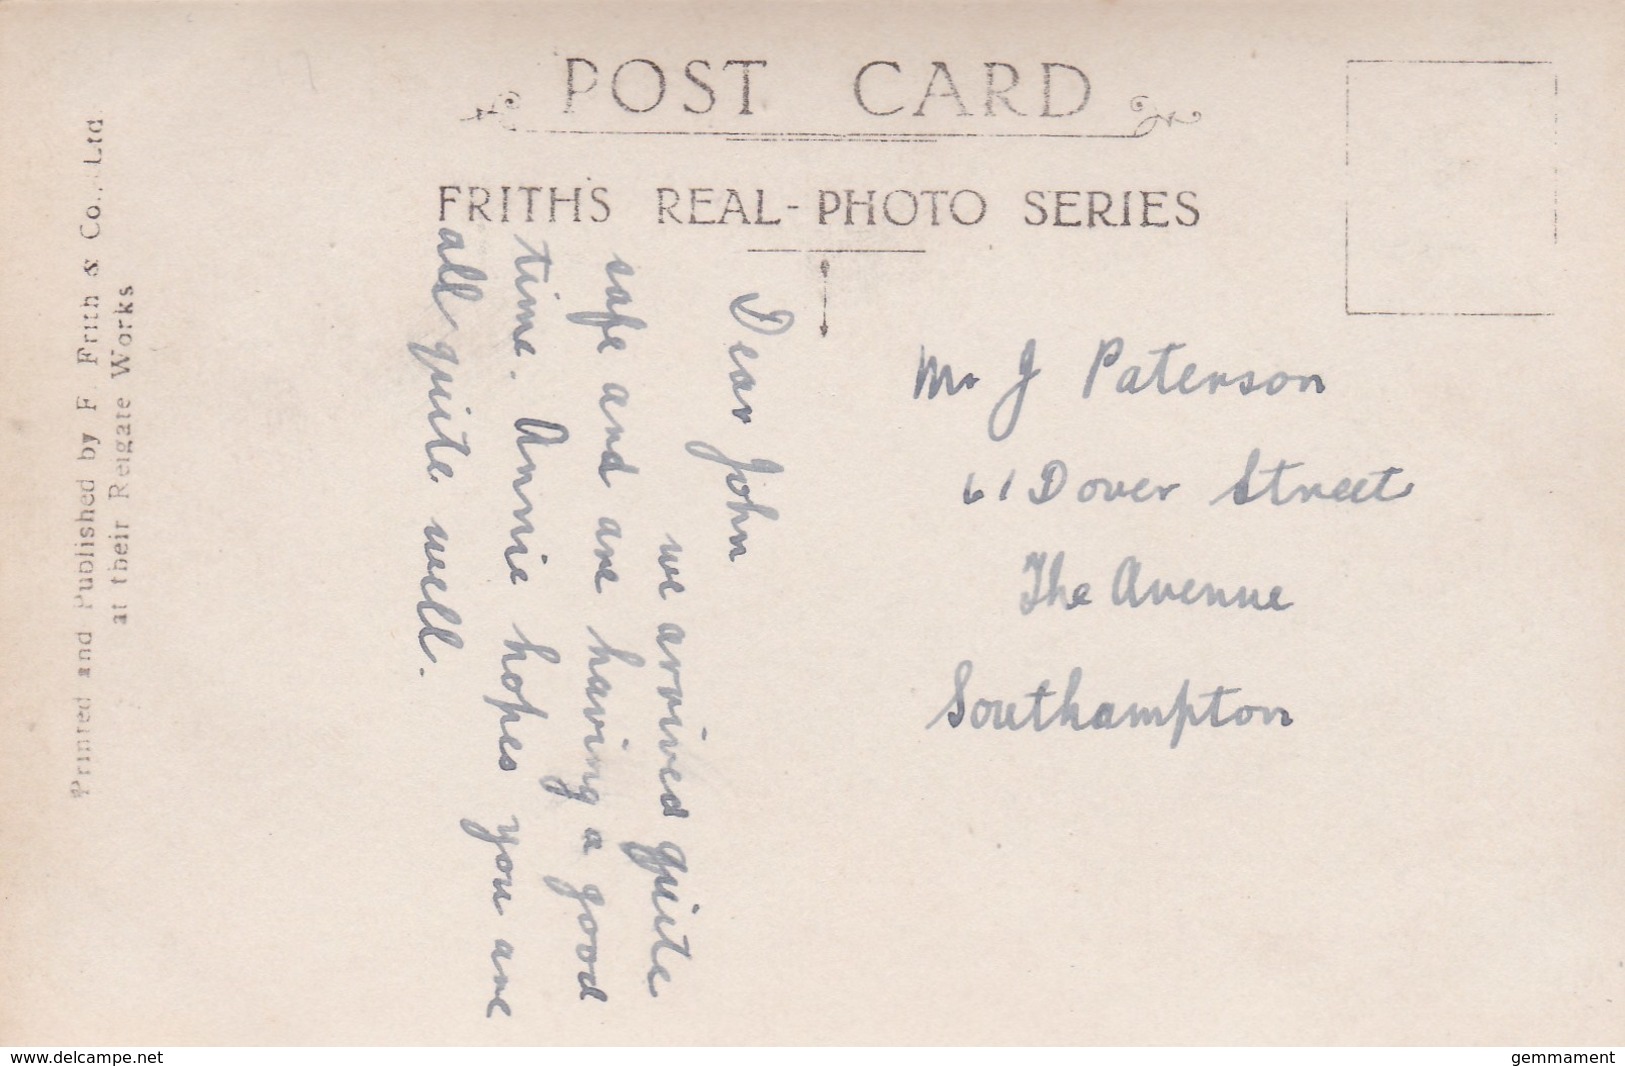 POST CARD
FRITH'S REAL-PHOTO SERIES
Printed and Published by F. Frith & Co., Ltd.
at their Reigate Works
Dear John
we arrived quite
safe and are having a good
time. Annie hopes you are
all quite well.
Mr J Paterson
61 Dover Street
The Avenue
Southampton
www.delcampe.net
gemmament